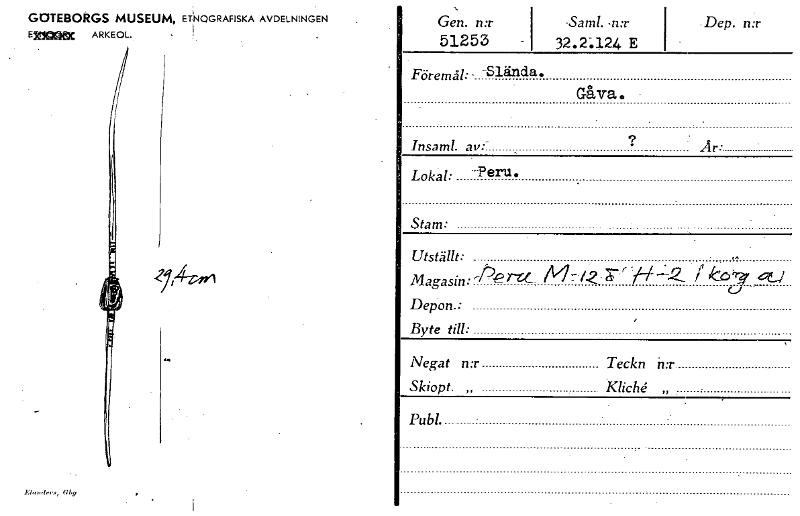 GÖTEBORGS MUSEUM, ETNOGRAFISKA AVDELNINGEN
ARKEOL.
29,4 cm
Elanders, Gbg
Gen. n:r Saml. n:r Dep. n:r
51253 32.2.124 E
Föremål: Slända.
Gåva.
Insaml. av: ? År:
Lokal: Peru.
Stam:
Utställt: „
Magasin: Peru M-128 H-2 i korg
Depon.:
Byte till:
Negat n:r Teckn n:r
Skiopt. „ Kliché „
Publ.